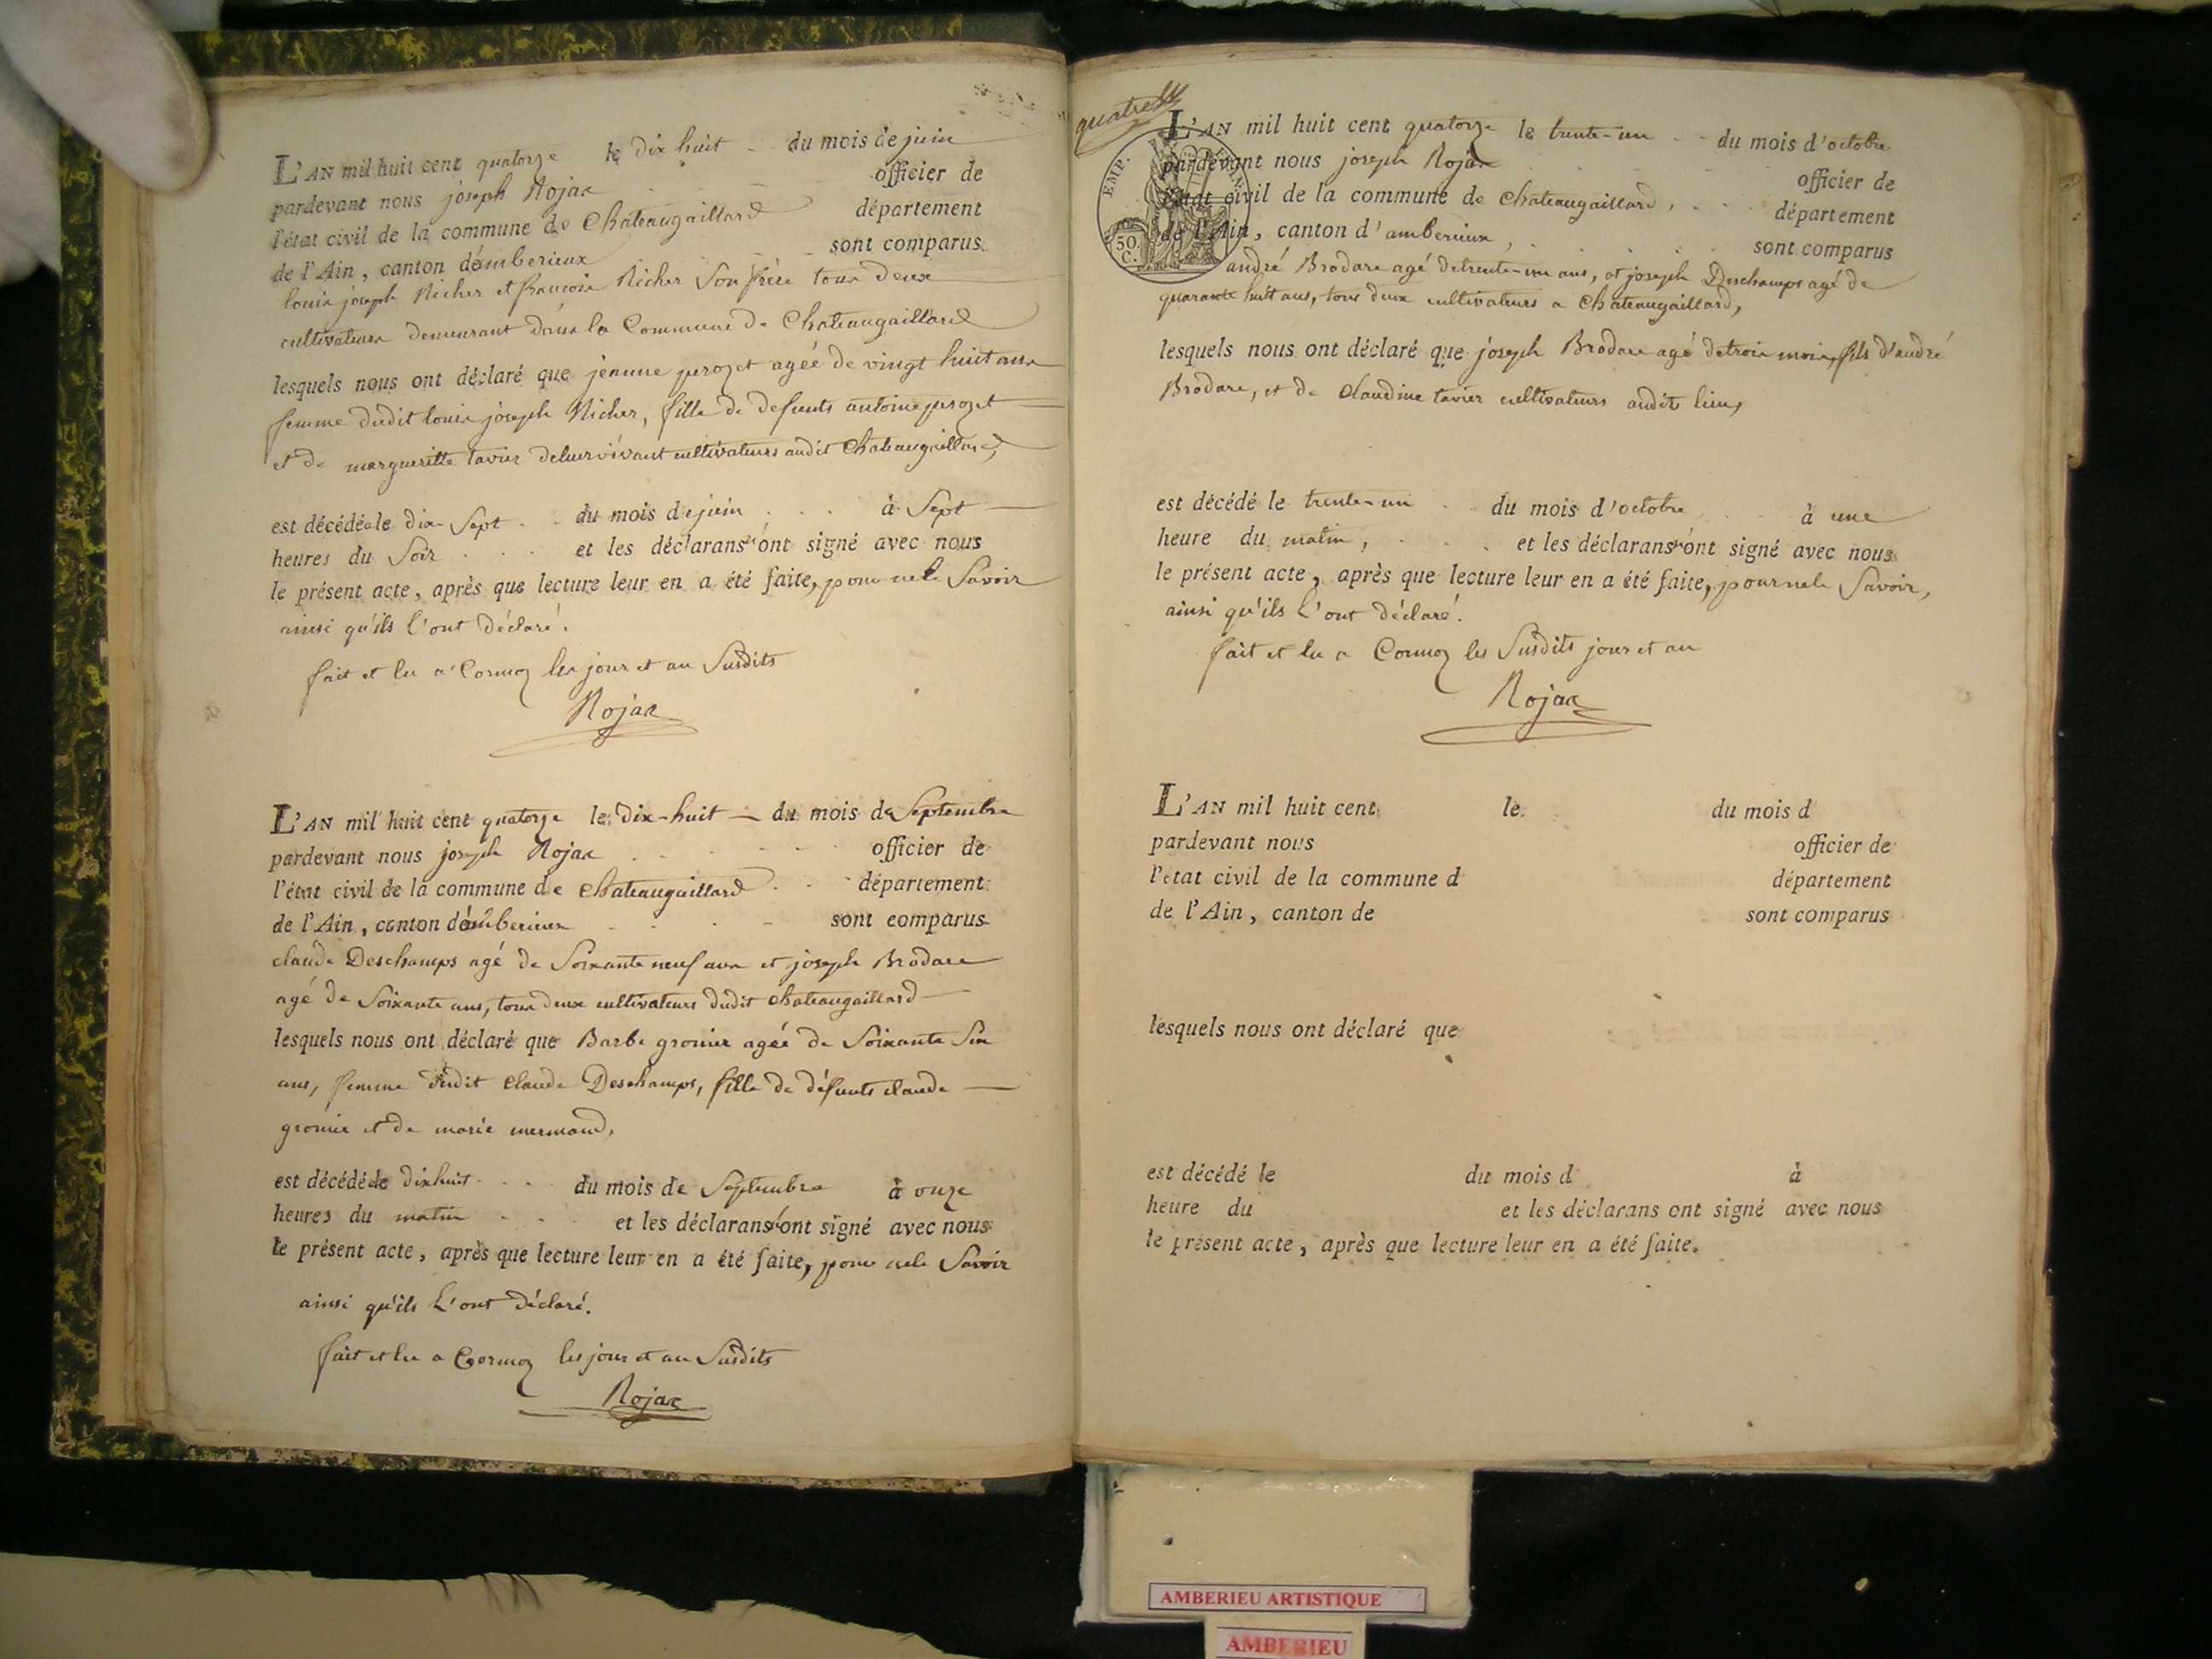 L'AN mil huit cent quatorze le dix huit du mois de juin
pardevant nous joseph Rojat officier de
l'état civil de la commune de Chateaugaillard département
de l'Ain, canton d'amberieux sont comparus
louis joseph Richer et francois Richer son frère tous deux
cultivateurs demeurant dans la Commune de Chateaugaillard
lesquels nous ont déclaré que jeanne perozet agée de vingt huit ans
femme dudit louis joseph Richer, fille de defunts antoine perozet
et de margueritte tavier deleur vivant cultivateurs audit Chateaugaillard,
est décédée le dix-sept du mois de juin à Sept
heures du Soir et les déclarans n'ont signé avec nous
le présent acte, après que lecture leur en a été faite, pour nele Savoir
ainsi qu'ils l'ont déclaré.
fait et lu a Cormoz les jour et an Susdits
Rojat
L'AN mil huit cent quatorze le dix-huit du mois de Septembre
pardevant nous joseph Rojat officier de
l'état civil de la commune de Chateaugaillard département
de l'Ain, canton d'amberieux sont comparus
claude Deschamps agé de Soixante neuf ans et joseph Brodare
agé de Soixante ans, tous deux cultivateurs dudit chateaugaillard
lesquels nous ont déclaré que Barbe gronier agée de Soixante Six
ans, femme dudit claude Deschamps, fille de défunts claude
gronier et de marie mermand,
est décédée le dixhuit du mois de Septembre à onze
heures du matin et les déclarans n'ont signé avec nous
le présent acte, après que lecture leur en a été faite, pour nele Savoir
ainsi qu'ils l'ont déclaré.
fait et lu a Cormoz les jour et an Susdits
Rojat
quatre
EMP. FRAN.
50. C.
L'AN mil huit cent quatorze le trente-un du mois d'octobre
pardevant nous joseph Rojat officier de
l'état civil de la commune de Chateaugaillard, département
de l'Ain, canton d'amberieux, sont comparus
andré Brodare agé detrente-un ans, et joseph Deschamps agé de
quarante huit ans, tous deux cultivateurs a Chateaugaillard,
lesquels nous ont déclaré que joseph Brodare agé detrois mois, fils d'andré
Brodare, et de Claudine tavier cultivateurs audit lieu,
est décédé le trente-un du mois d'octobre à une
heure du matin, et les déclarans n'ont signé avec nous
le présent acte, après que lecture leur en a été faite, pour nele Savoir,
ainsi qu'ils l'ont déclaré.
fait et lu a Cormoz les Susdits jour et an
Rojat
L'AN mil huit cent le du mois d
pardevant nous officier de
l'état civil de la commune d département
de l'Ain, canton de sont comparus
lesquels nous ont déclaré que
est décédé le du mois d à
heure du et les déclarans ont signé avec nous
le présent acte, après que lecture leur en a été faite.
AMBERIEU ARTISTIQUE
AMBERIEU